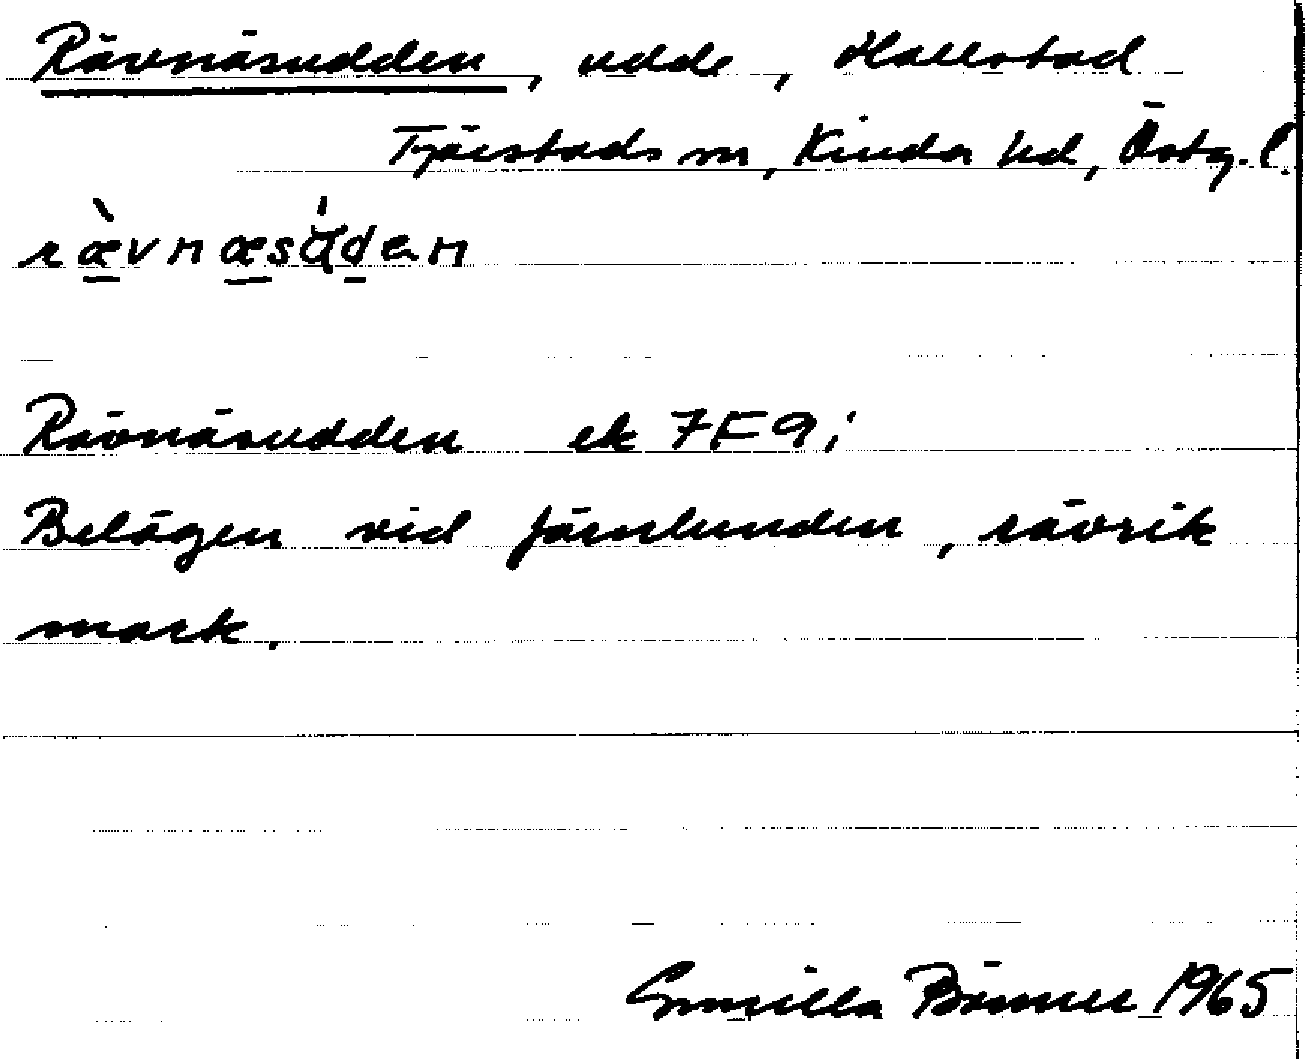 Rävnäsudden, udde, Hallstad
Tjärstads sn, Kinda hd, Östg. l.
rὰvnæsʉ́den
Rävnäsudden ek 7F9i
Belägen vid Järnlunden, rävrik
mark.
Gunilla 1965